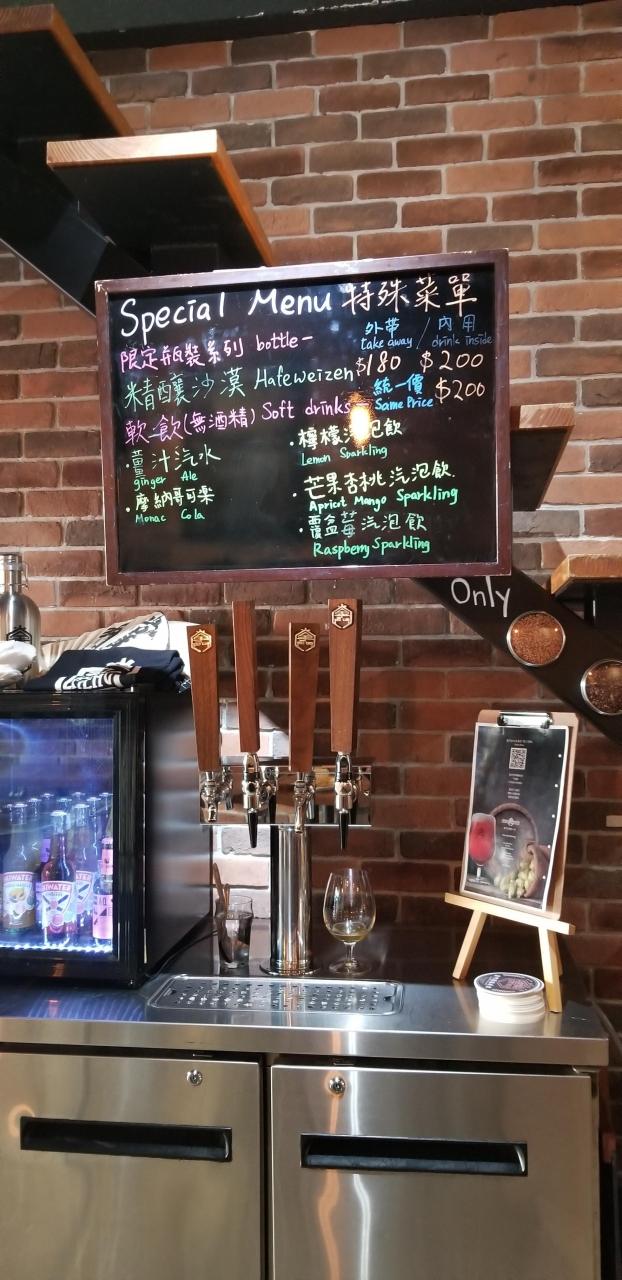 Special Menu 特殊菜單
限定瓶裝系列 bottle-
外帶 / 內用
take away / drink inside
精釀沙漠 Hafeweizen $180 $200
軟飲(無酒精) Soft drinks
統一價 $200
Same Price
·薑汁汽水
ginger Ale
·摩納哥可樂
Monac Cola
·檸檬汽泡飲
Lemon Sparkling
·芒果杏桃汽泡飲
Apricot Mango Sparkling
·覆盆莓汽泡飲
Raspberry Sparkling
Only